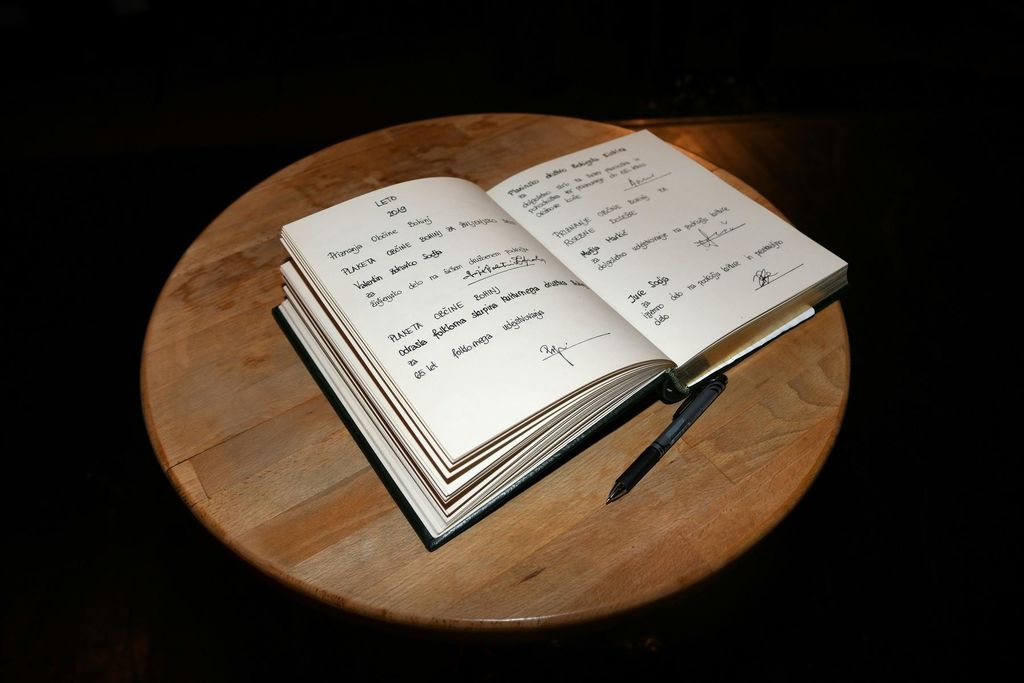 LETO
2019
Priznanja Občine Bohinj
PLAKETA OBČINE BOHINJ ZA ŽIVLJENJSKO
Valentin Zdravko Sodja
za
življenjsko delo na širšem družbenem področju
PLAKETA OBČINE BOHINJ
Odrasla folklorna skupina kulturnega društva
za
65 let folklornega udejstvovanja
Planinsko društvo Bohinjska Bistrica
za
dolgoletno skrb za širšo planinsko in
pohodništvo in planiranje do 65 letnice
Orožnove koče
PRIZNANJE OBČINE BOHINJ ZA
POSEBNE DOSEŽKE
Marija Markič
za
dolgoletno udejstvovanje na področju kulture
Jure Sodja
za
izjemno delo na področju kulture in pevskega
dela